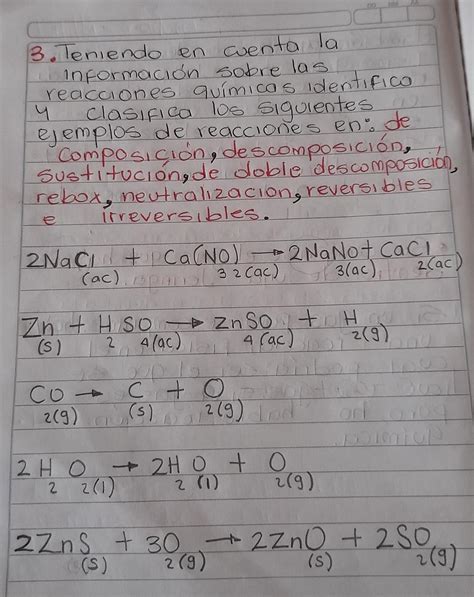 3. Teniendo en cuenta la
información sobre las
reacciones químicas identifico
y clasifica los siguientes
ejemplos de reacciones en: de
composición, descomposición,
sustitución, de doble descomposición,
rebox, neutralización, reversibles
e irreversibles.
2NaCl(ac) + Ca(NO3)2(ac) → 2NaNO3(ac) + CaCl2(ac)
Zn(s) + H2SO4(ac) → ZnSO4(ac) + H2(g)
CO2(g) → C(s) + O2(g)
2H2O2(l) → 2H2O(l) + O2(g)
2ZnS(s) + 3O2(g) → 2ZnO(s) + 2SO2(g)